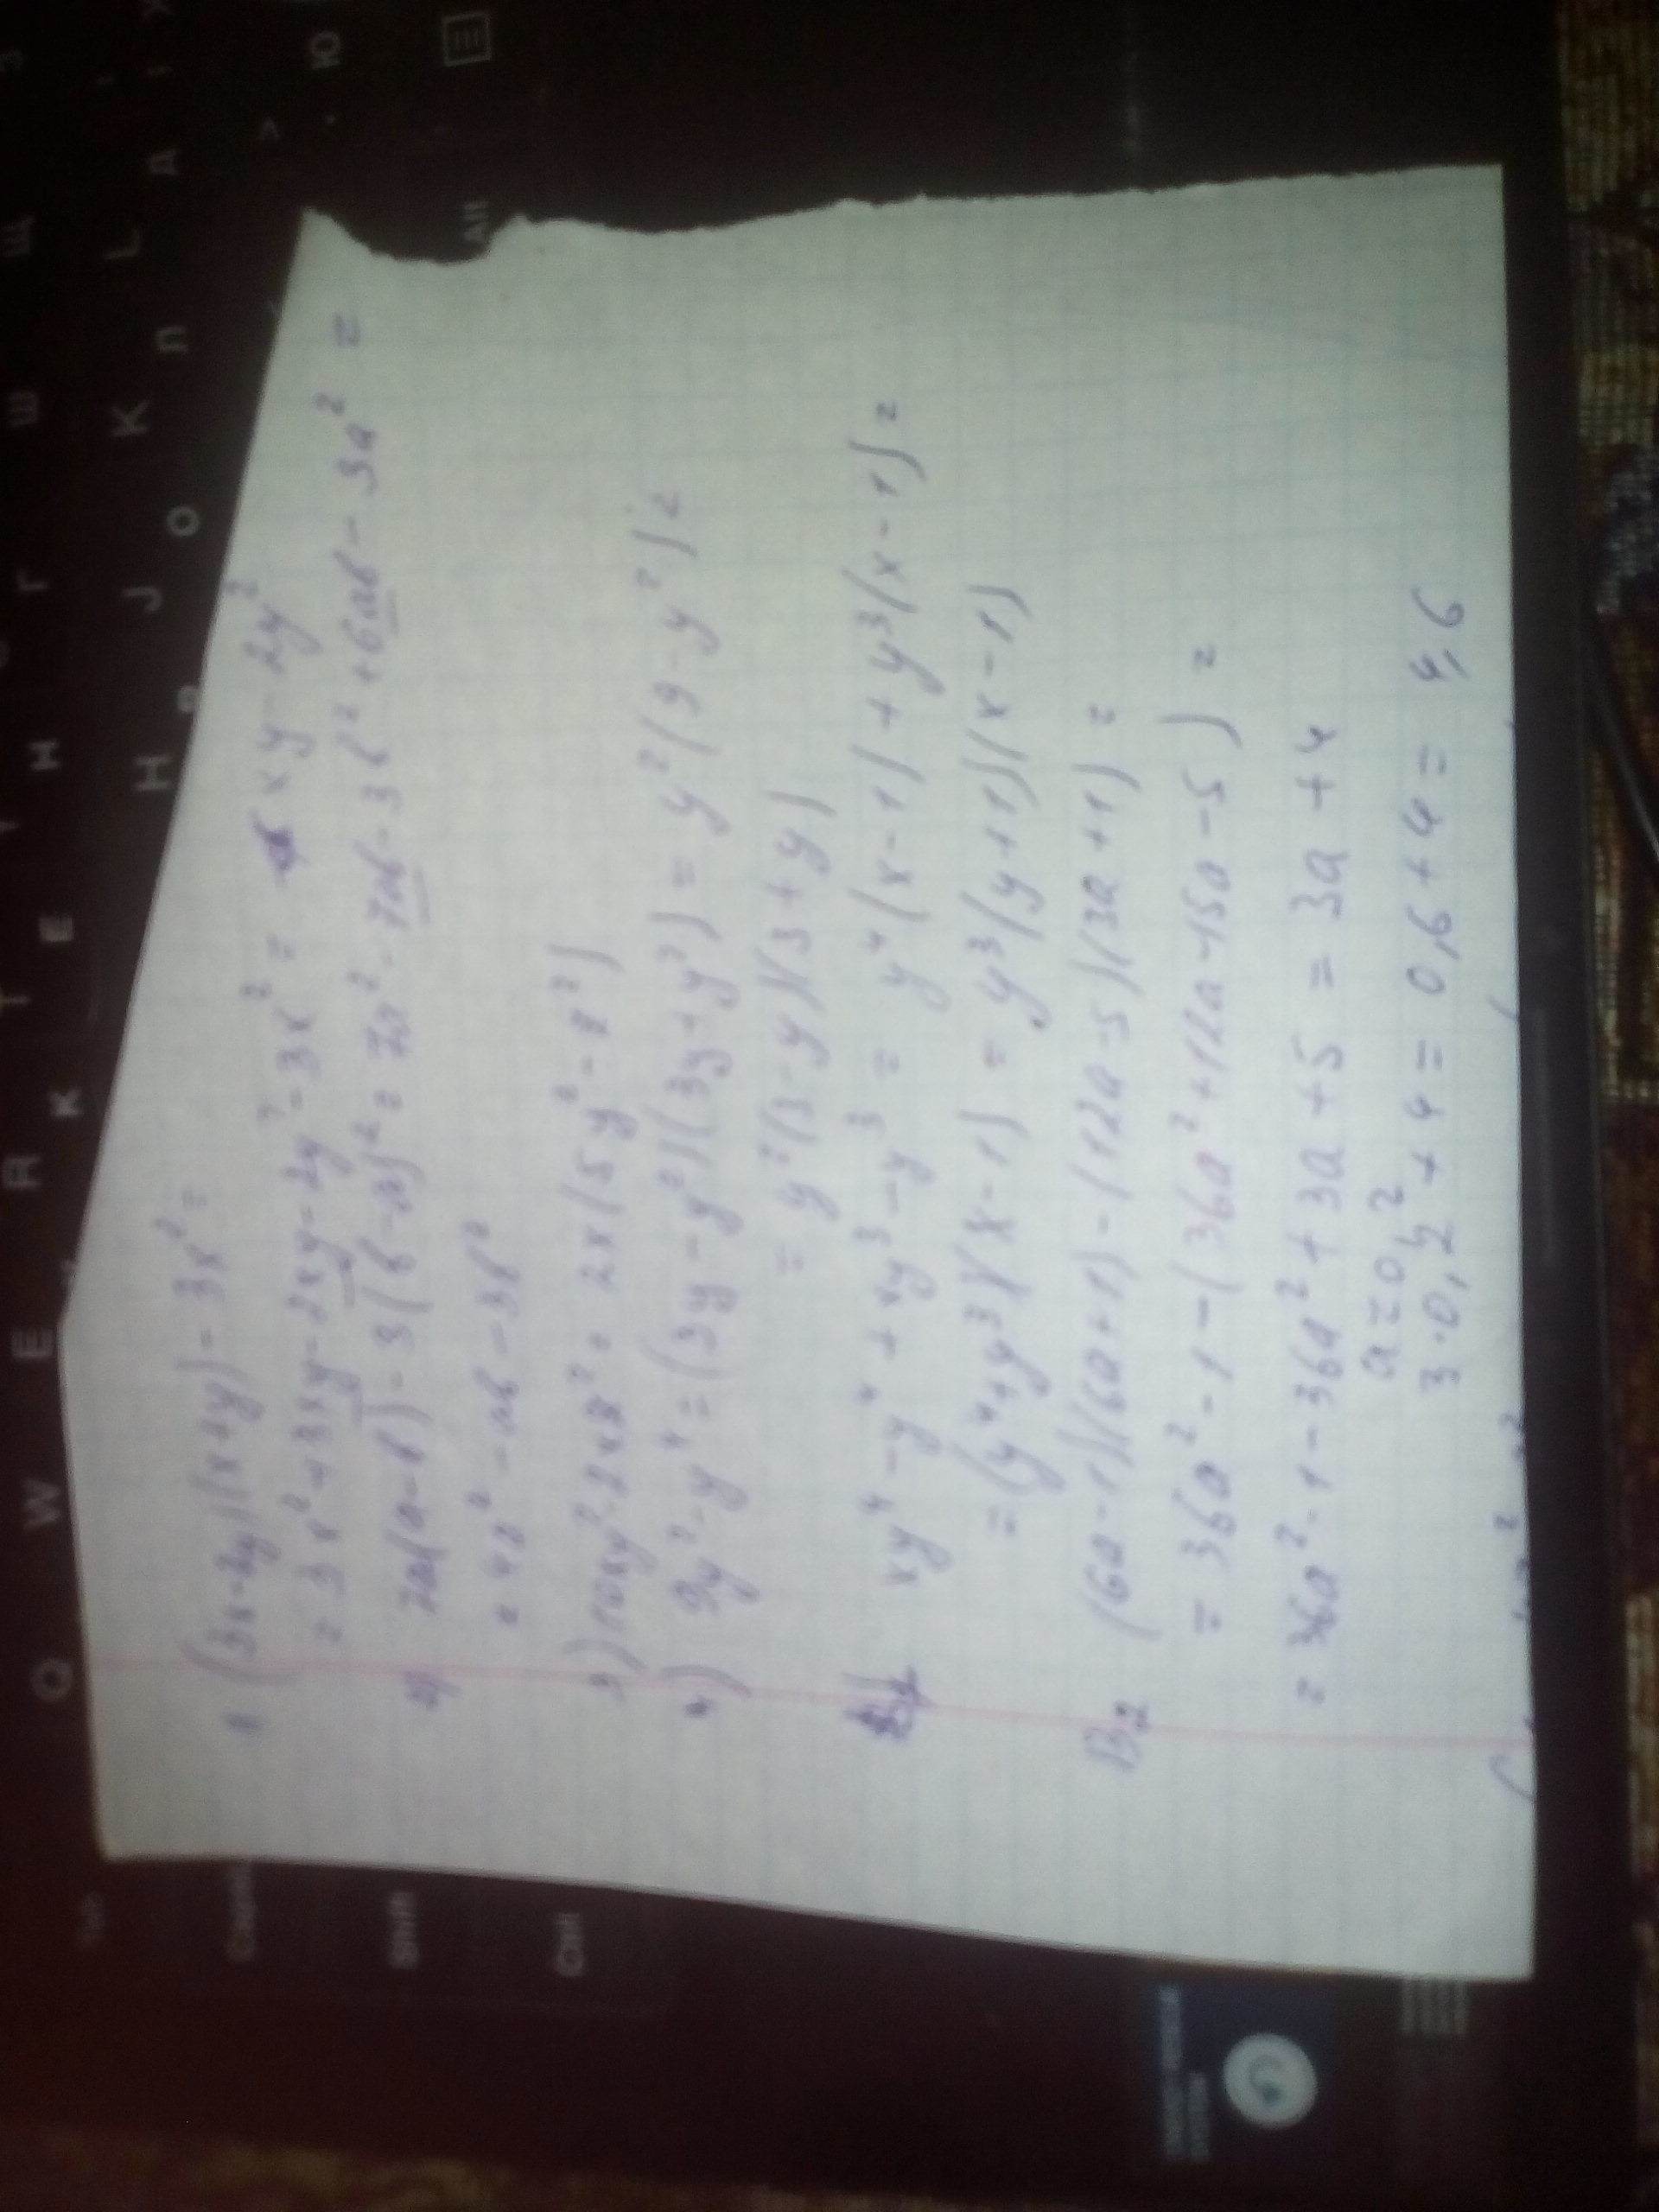 1 (3x-2y)(x+y)-3x²=
=3x²+3xy-2xy-2y²-3x²= xy-2y²
2) 7a(a-b)-3(b-a)²=7a²-7ab-3b²+6ab-3a²=
=4a²-ab-3b²
3) 10xy²-2x8²=2x(5y²-8²)
4) 9y²-y⁴=(3y-y²)(3y+y²)=y²(9-y²)=
=y²(3-y)(3+y)
xy⁴-y⁴+xy³-y³=y⁴(x-1)+y³(x-1)=
=(y⁴+y³)(x-1)=y³(y+1)(x-1)
B2 (6a-1)(6a+1)-(12a-5)(3a+1)=
=36a²-1-(36a²+12a-15a-5)=
=36a²-1-36a²+3a+5=3a+4
a=0,2
3·0,2+4=0,6+4=4,6
Q W E R T
З Щ Ш Г Н Е К
H J K L
Р О Л Д
Ю
Alt
Shift
Ctrl